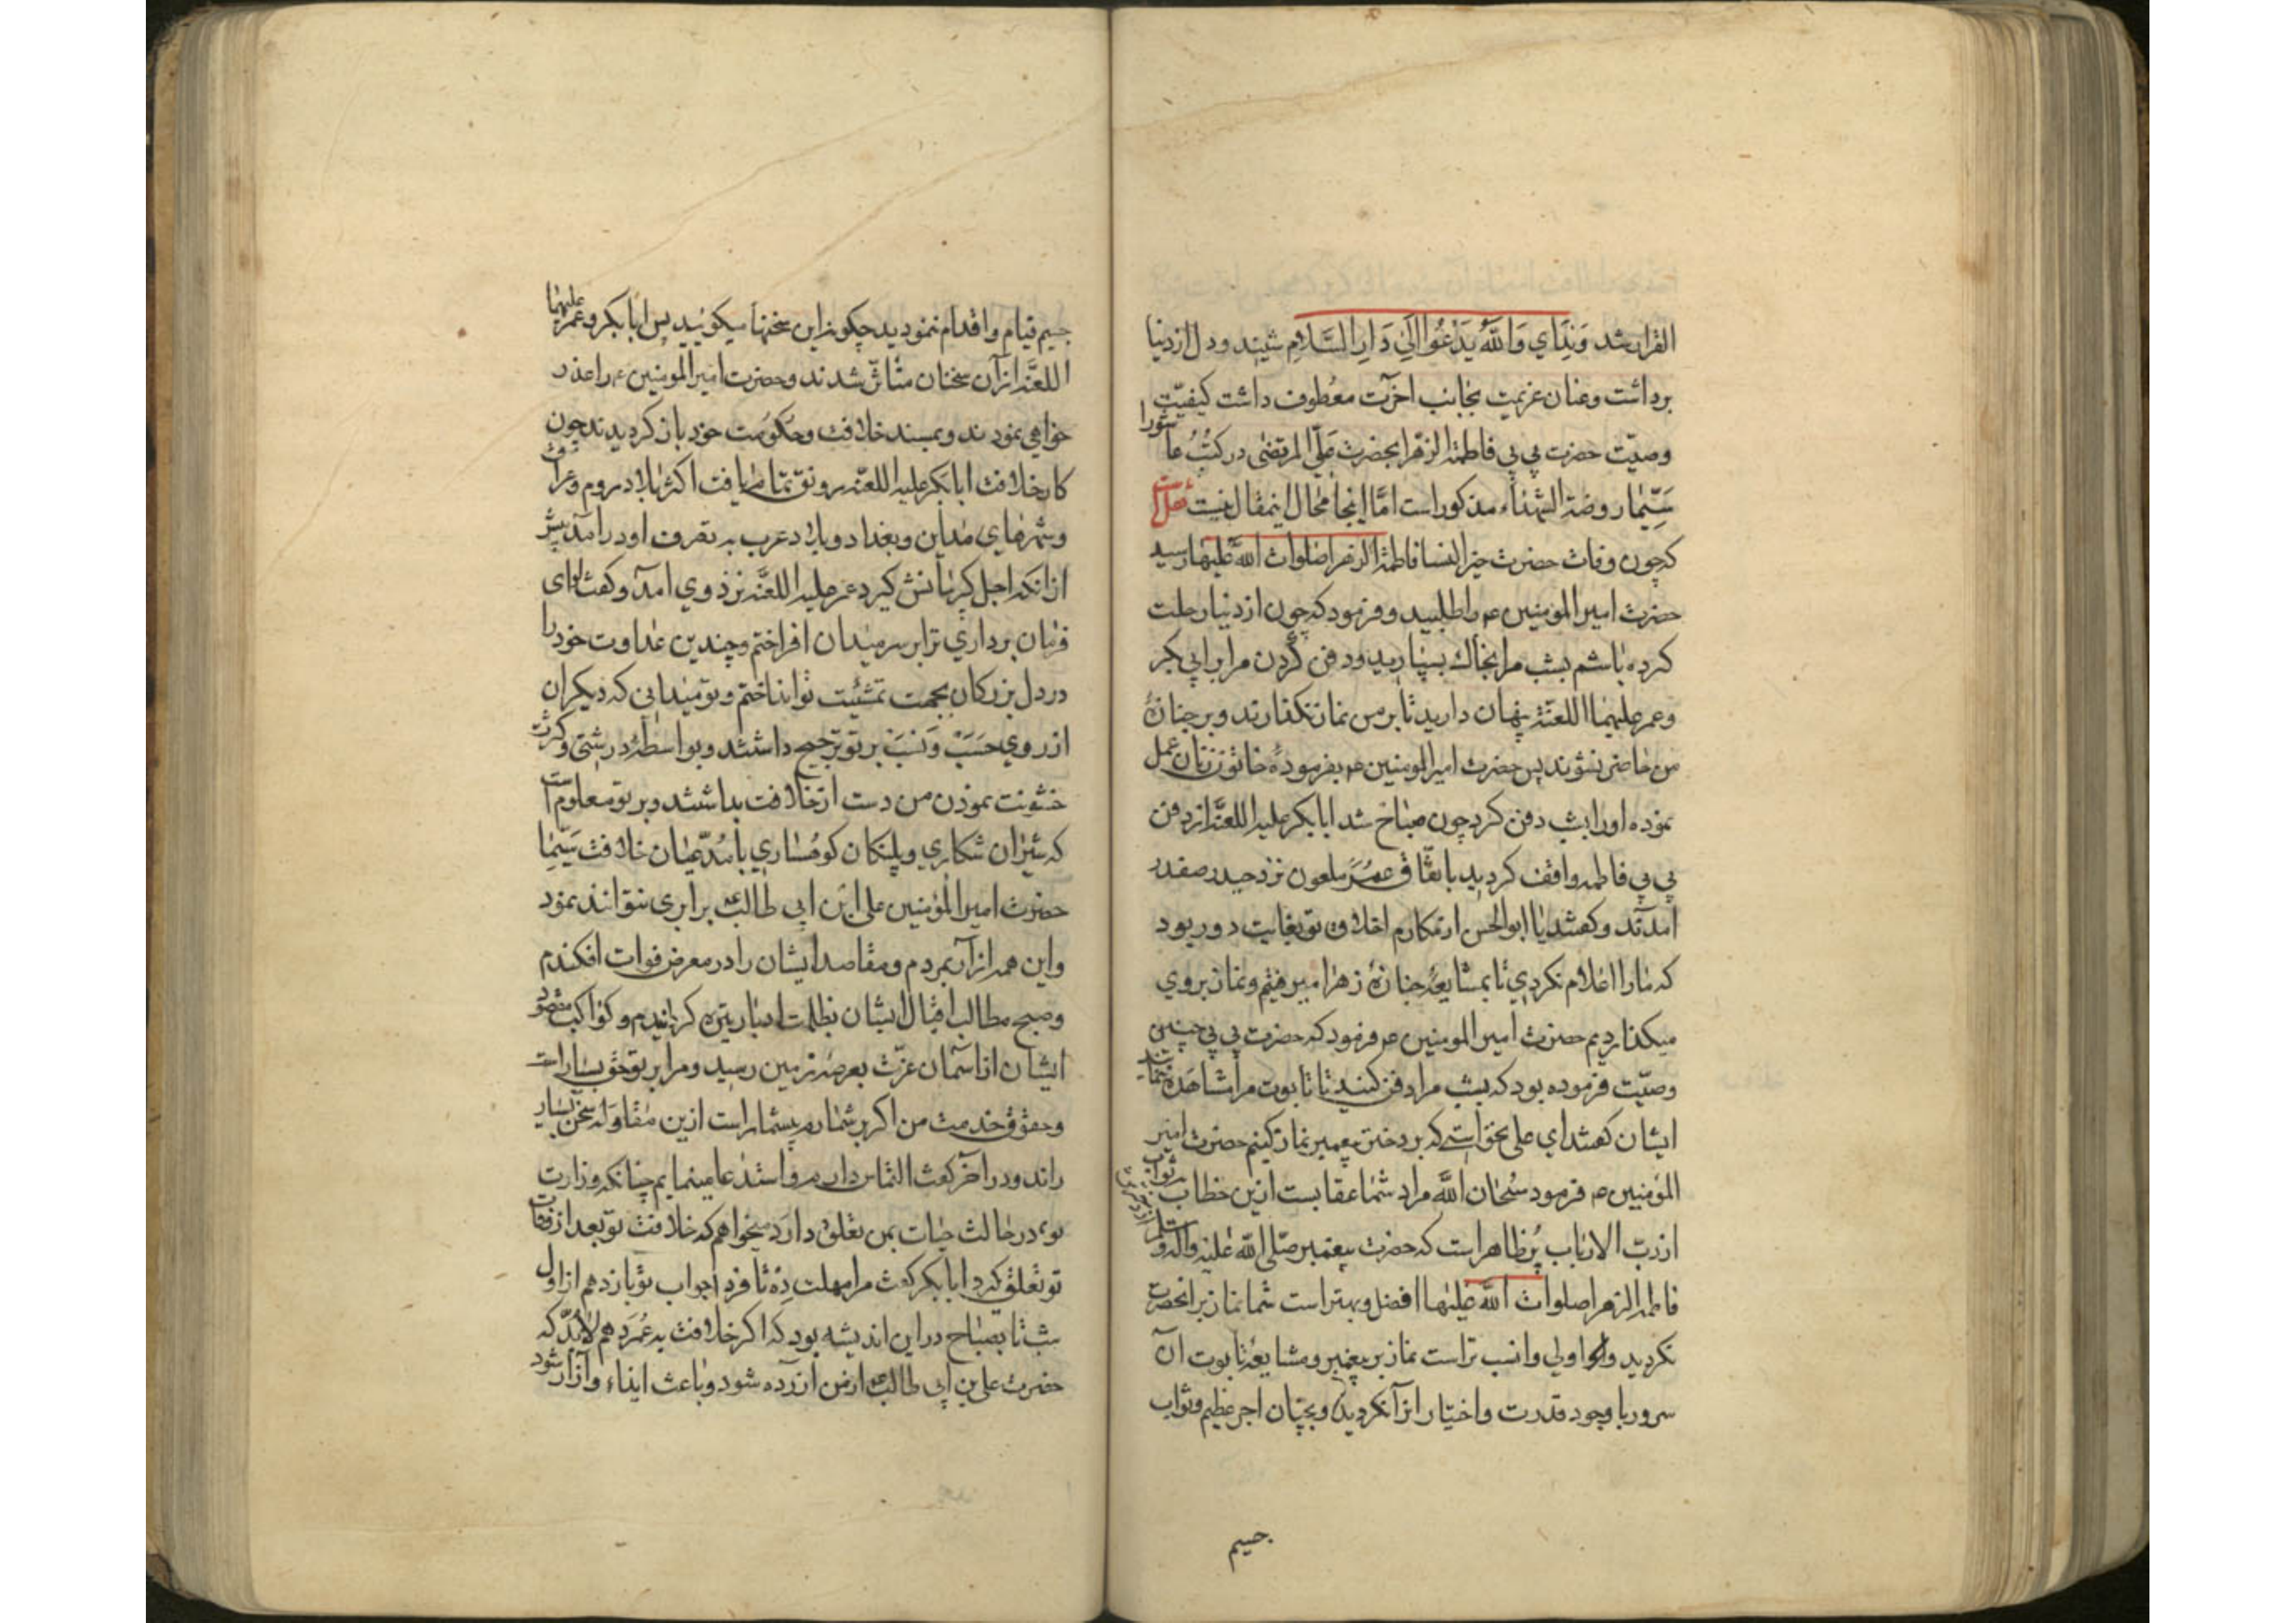 القران شد وَنِدَاي وَاللّٰهُ يَدْعُوا اِلَىٰ دَارِ السَّلَامِ شنیند ودل ازدنیا
برداشت وعنان عزیمت بجانب اخرت معطوف داشت کیفیّت
وصیّت حضرت بی بی فاطمة الزهرا بحضرت علیّ المرتضی در کتُبُ عاشورا
سَیّما روضة الشهداء مذکور است امّا اینجا محال اینمقال نیست نقلست
که چون وفات حضرت خیر النسا فاطمة الزهرا صلوات اللّه علیها رسید
حضرت امیر المومنین ع را طلبید و فرمود که چون از دنیا رحلت
کرده باشم بشب مرا بخاک بسپارید ودفن کردن مرا بر ابی بکر
وعمر علیهما اللعنة پنهان دارید تا بر من نماز نکذارند وبر جنازۀ
من حاضر نشوند پس حضرت امیر المومنین ع بفرمودۀ خاتون زنان عمل
نموده اورا بشب دفن کرد چون صباح شد ابا بکر علیه اللعنة از دفن
بی بی فاطمه واقف کردید باتفاق عمر ملعون نزد حیدر صفدر
آمدند وکفتند یا ابو الحسن از مکارم اخلاق تو بغایت دور بود
که مارا اعلام نکردی تا بمشایعۀ جنازۀ زهرا میرفتیم ونماز بروی
میکذاردیم حضرت امیر المومنین ع فرمود که حضرت بی بی چنین
وصیّت فرموده بود که بشب مرا دفن کنید تا تابوت مرا مشاهده ننمایند
ایشان کفتند ای علی بخواستیم که بر دختر پیغمبر نماز کنیم حضرت امیر
المؤمنین ع فرمود سُبحان اللّه مراد شما عقابست ازین خطاب ثواب
از ربّ الارباب پُر ظاهر است که حضرت پیغمبر صلی اللّه علیه واله وسلم از دختر
فاطمة الزهرا صلوات اللّه علیها افضل وبهتر است شما نماز بر انحضرت
نکردید واو اولی وانسب تر است نماز بر پیغمبر ومشایعۀ تابوت آن
سرور با وجود قدرت واختیار از آن کردید وبچنان اجر عظیم وثواب
جسیم
جسیم قیام واقدام ننمودید چکونه این سخنها میکویید پس ابا بکر وعمر علیهما
اللعنة از آن سخنان متاثّر شدند وحضرت امیر المومنین ع را عذر
خواهی نمودند وبمسند خلافت وحکومت خود باز کردیدند چون
کار خلافت ابا بکر علیه اللعنه رونق تمام یافت اکثر بلاد روم وعراق
وشهرهای مداین وبغداد وبلاد عرب به تصرف او درآمد پیش
از انکه اجل کریبانش کیرد عمر علیه اللعنه نزد وی آمد وکفت لوای
فرمان برداری ترا بر سر میدان افراختم وچندین عداوت خود را
در دل بزرکان بجهت تمشیت تو انداختم وتو میدانی که دیکران
از روی حَسَبْ وَنَسَبْ بر تو ترجیح داشتند وبواسطۀ درشتی وکثرت
خشونت نمودن من دست از خلافت بداشتند وبر تو معلوم است
که شیران شکاری وپلنکان کوهساری با مُدّعیان خلافت سَیّما
حضرت امیر المؤمنین علی ابن ابی طالب ع برابری نتوانند نمود
واین همه از آن بردم ومقاصد ایشان را در معرض فوات افکندم
وصبح مطالب اقبال ایشان بظلمت ادبار تیره کردانیدم وکواکب مقصود
ایشان از آسمان عزّت بعرصۀ زمین رسید ومرا بر تو حقّ بسیار است
وحقوق خدمت من اکر بر شمارم بیشمار است ازین مقاوله سخن بسیار
راند ودر آخر کفت التماس دارم واستدعا مینمایم چنانکه وزارت
تو در حالت حیات بمن تعلّق دارد میخواهم که خلافت تو بعد از وفات
تو تعلّق کیرد ابا بکر کفت مرا مهلت دِه تا فردا جواب تو باز دهم از اول
شب تا بصباح در این اندیشه بود که اکر خلافت به عُمَر دهم لابُدّ که
حضرت علی بن ابی طالب ع از من آزرده شود وباعث ایذاء وآزار شود